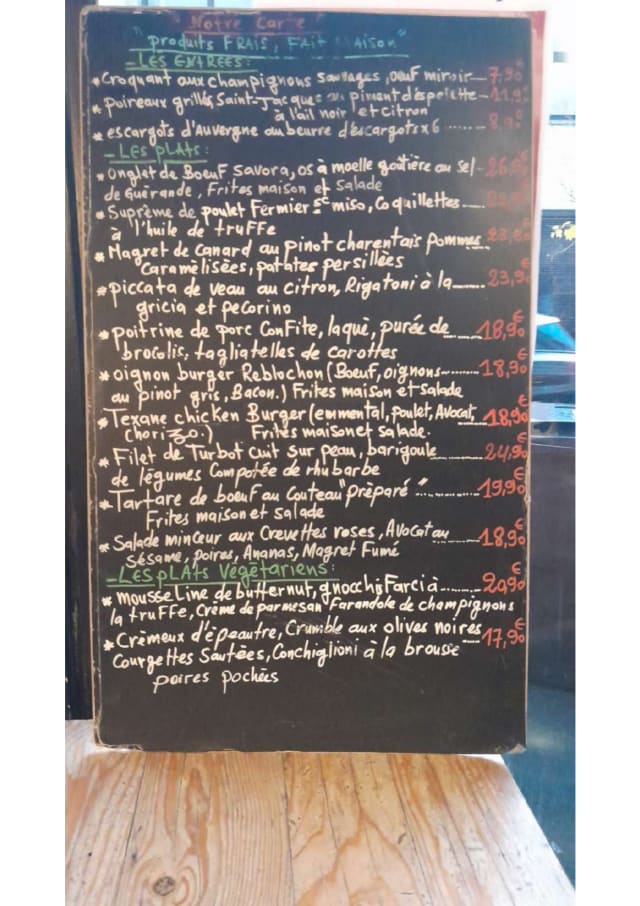 "Notre Carte"
"produits FRAIS, FAit MAison"
- LES ENTREES:
* Croquant aux champignons sauvages, oeuf miroir — 7,90€
* poireaux grillés Saint-Jacques au piment d'espelette — 11,9
à l'ail noir et citron
* escargots d'Auvergne au beurre d'escargots x 6 ...... 8,90
- LES pLAts:
* Onglet de Boeuf Savora, os à moelle goutière au Sel - 26,
de Guérande, Frites maison et Salade
* Suprême de poulet Fermier sc miso, Coquillettes ....
à l'huile de truffe
* Magret de Canard au pinot charentais Pommes 23,
Caramèlisées, patates persillées
* piccata de veau au citron, Rigatoni à la ...... 23,9
gricia et pecorino
* poitrine de porc ConFite, laqué, purée de ...... 18,90€
brocolis, tagliatelles de carottes
* oignon burger Reblochon (Boeuf, oignons ........ 18,90€
au pinot gris, Bacon.) Frites maison et Salade
* Texane chicken Burger (emmental, poulet, Avocat, ...... 18,90€
chorizo.) Frites maison et salade.
* Filet de Turbot cuit sur peau, barigoule ........ 24,90€
de légumes Compotée de rhubarbe
* Tartare de boeuf au Couteau "prèparé" ........ 19,90€
Frites maison et salade
* Salade minceur aux Crevettes roses, Avocat au ...... 18,90€
Sésame, poires, Ananas, Magret Fumé
- LES pLAts Végétariens:
* mousseline de butternut, gnocchis Farci à ........ 20,90€
la truffe, Crème de parmesan Farandole de champignons
* Crèmeux d'épeautre, Crumble aux olives noires .... 17,90€
Courgettes Sautées, Conchiglioni à la brousse
poires pochées